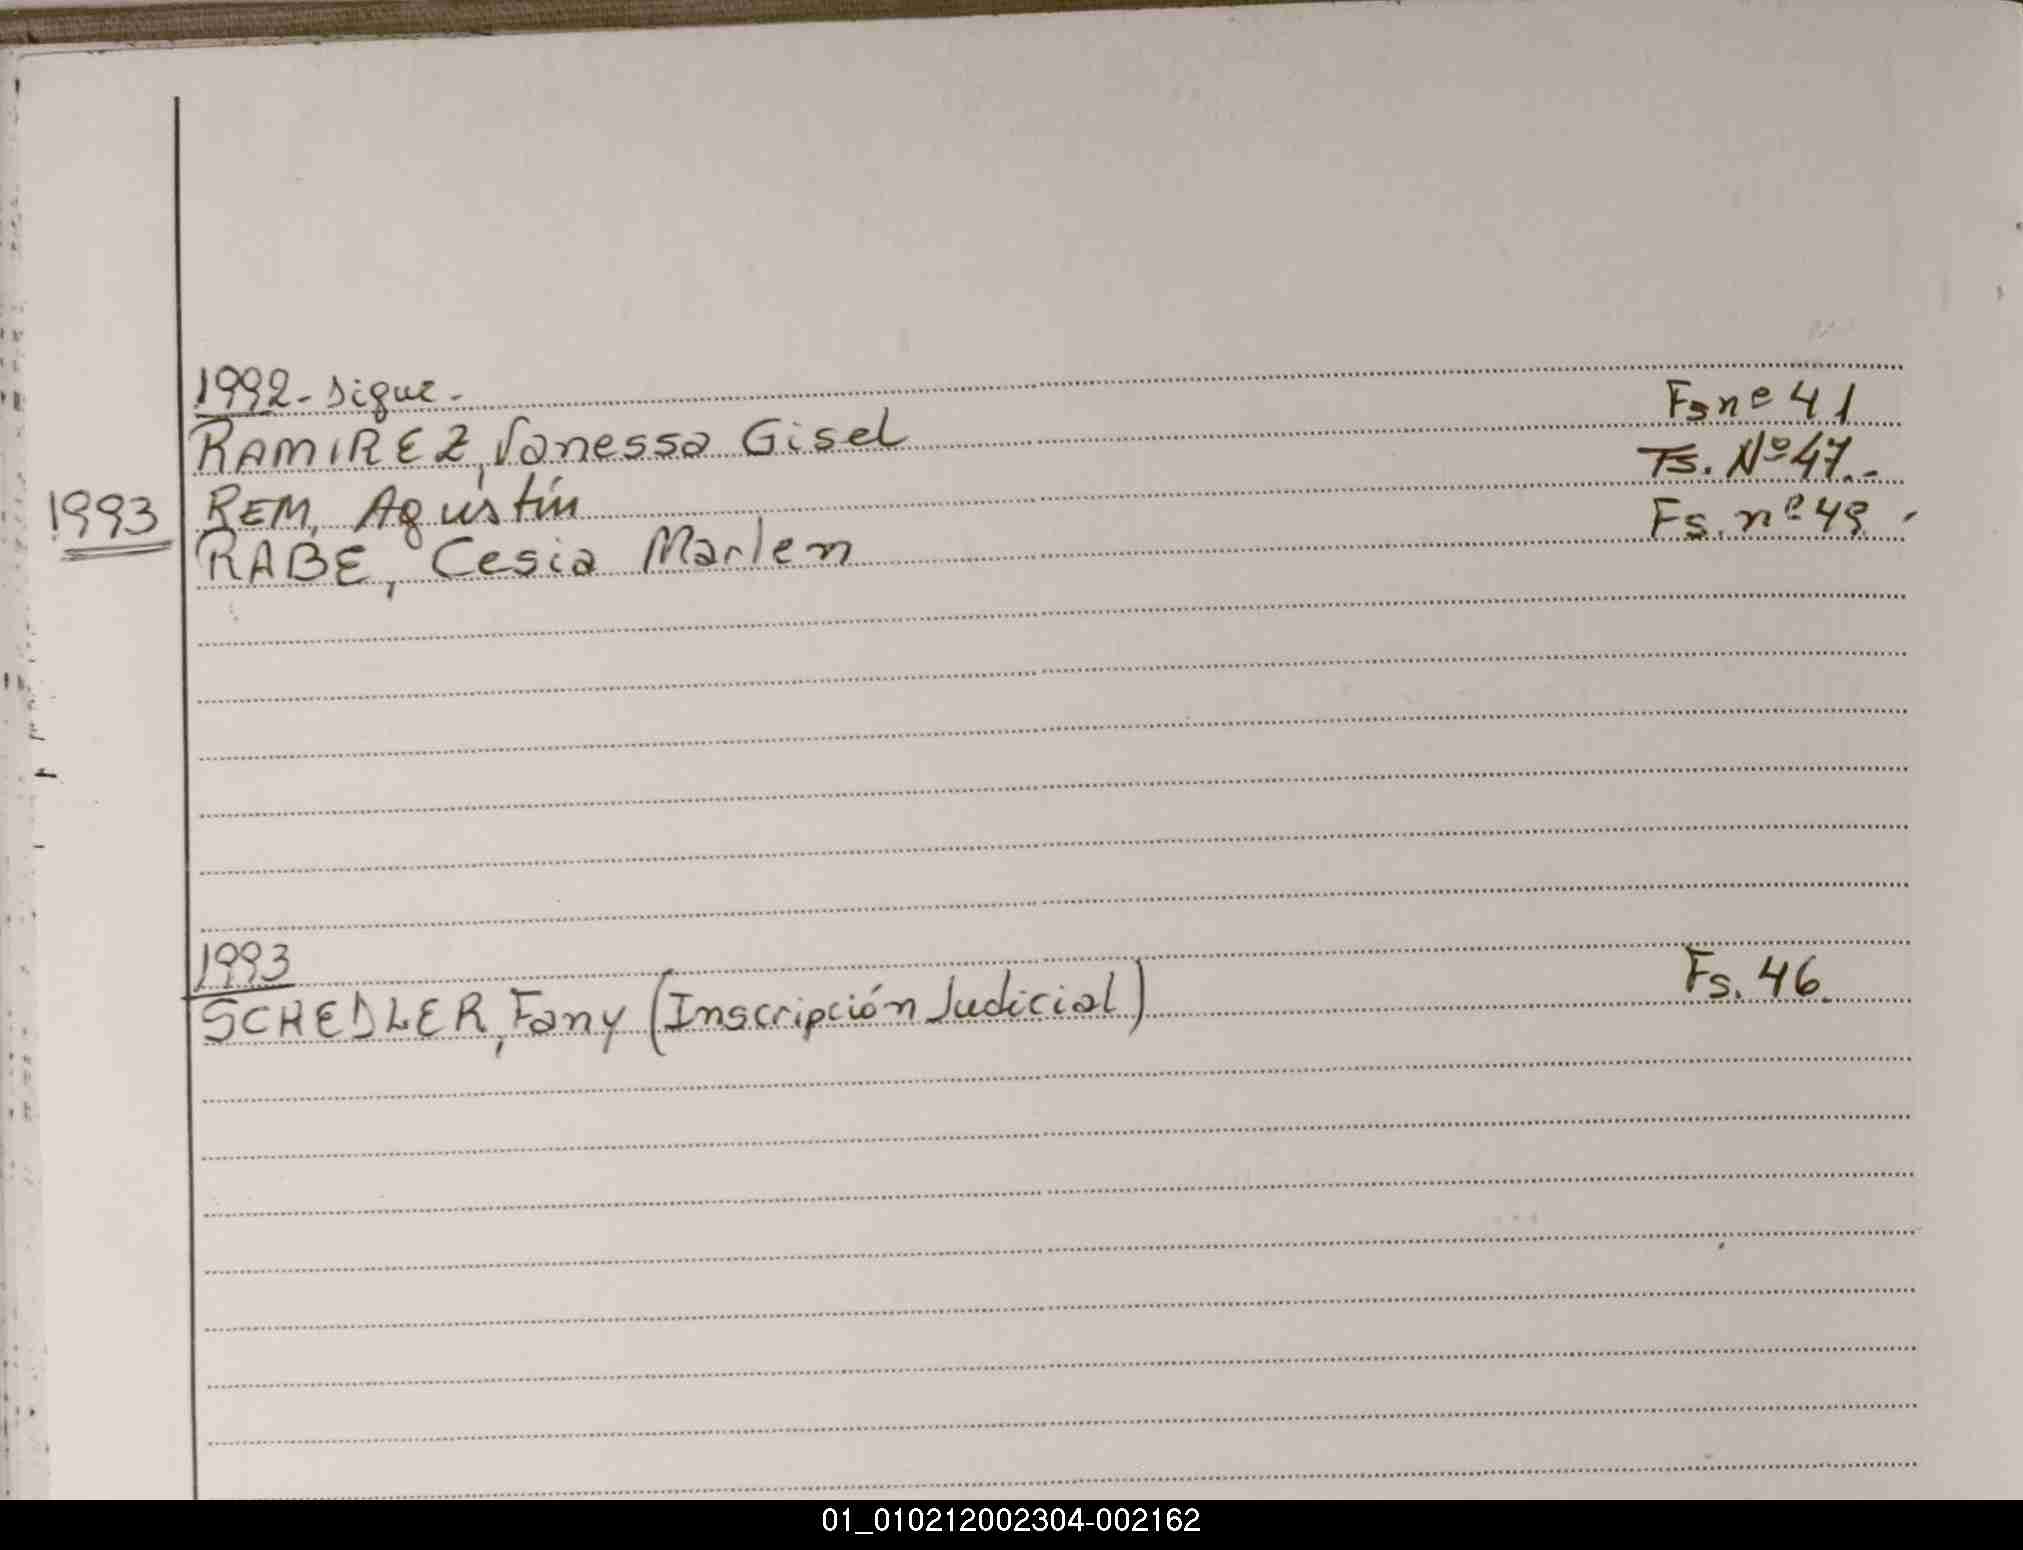 1992-sigue-
RAMIREZ, Vanessa Gisel Fs nº 41
1993 REM, Agustín Fs. Nº 47.-
RABE, Cesia Marlem Fs. nº 49.
1993
SCHEDLER, Fany (Inscripción Judicial) Fs. 46.
01_010212002304-002162